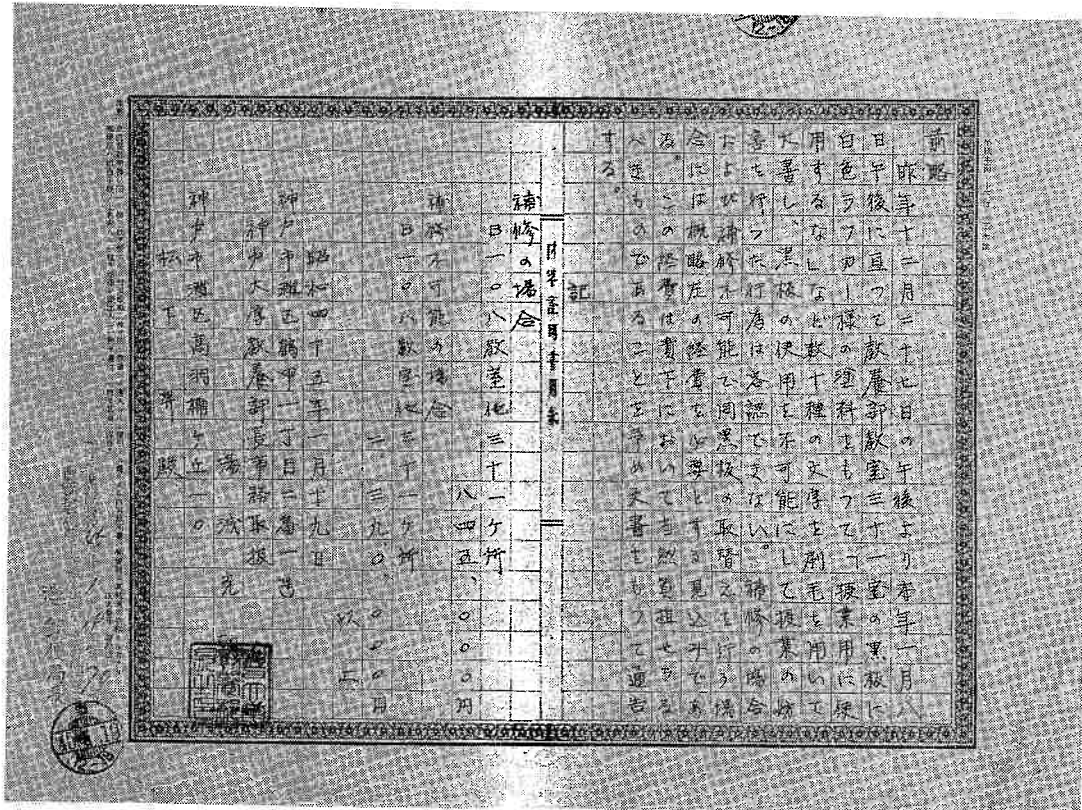 前略
昨年十二月二十七日の午後より本年一月八
日午後に亘って教養部教室三十一室の黒板に
白色ラッカー様の塗料をもって「授業用に使
用するな」など数十種の文字を刷毛を用いて
大書し、黒板の使用を不可能にして授業の妨
害を行った行為は容認できない。補修の場合
および補修不可能で同黒板の取替えを行う場
合には概略左の経費を必要とする見込みであ
る。この経費は貴下において当然負担せらる
べきものであることを予め文書をもって通告
する。
記
補修の場合
B一〇八教室他三十一ケ所
八四五、〇〇〇円
補修不可能の場合
B一〇八教室他三十一ケ所
二、三九〇、〇〇〇円
以上
昭和四十五年一月十九日
神戸市灘区鶴甲一丁目二番一号
神戸大学教養部長事務取扱
湯浅光
神戸市灘区高羽楠ケ丘一〇
松下昇殿